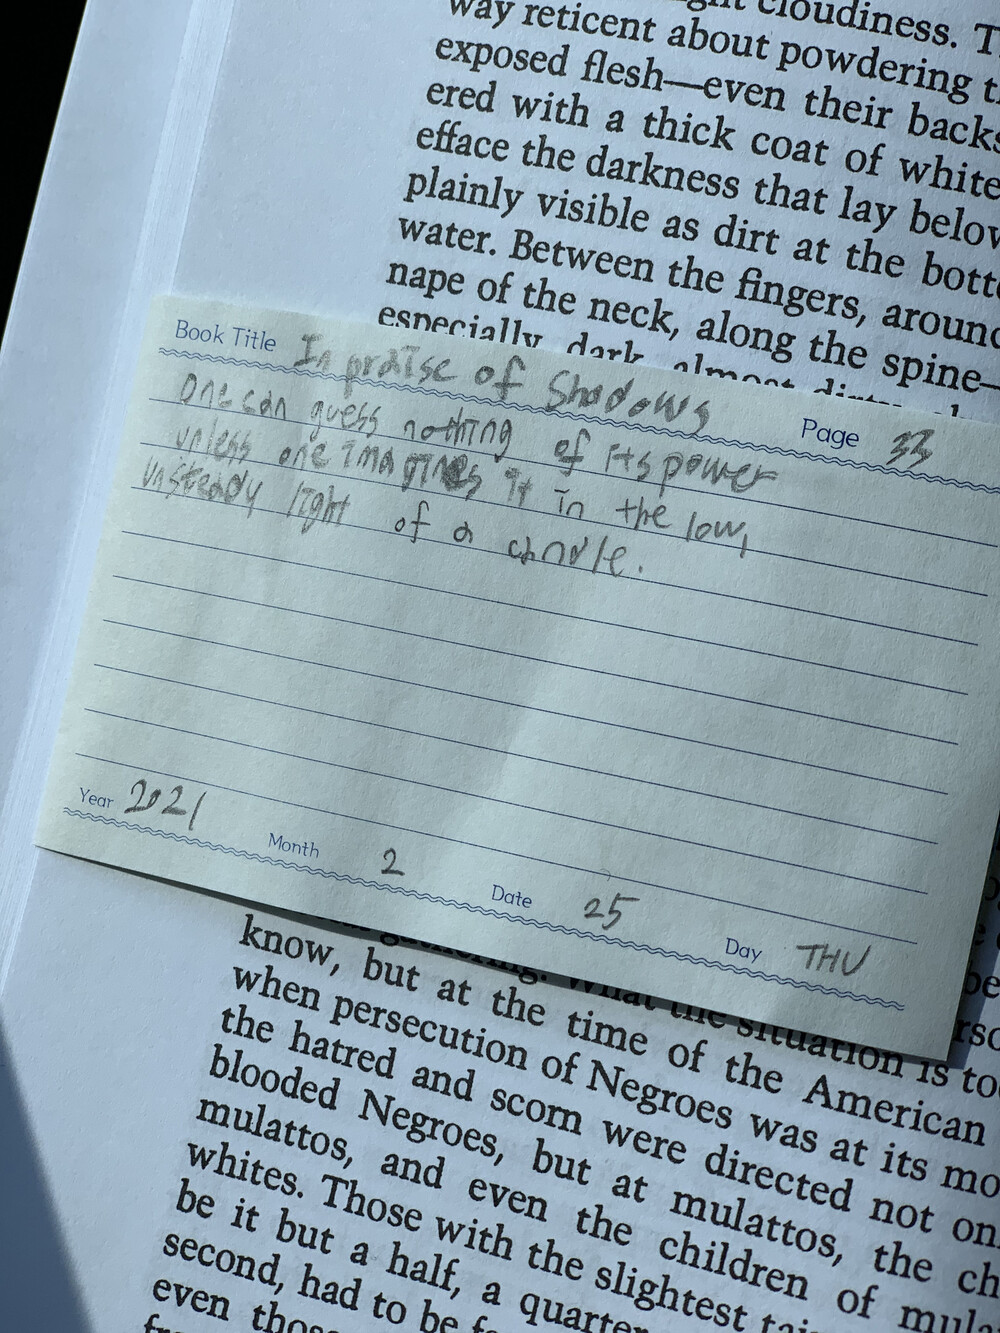 cloudiness. T
way reticent about powdering
exposed flesh—even their backs
ered with a thick coat of white
efface the darkness that lay below
plainly visible as dirt at the botto
water. Between the fingers, around
nape of the neck, along the spine—
especially dark, almost dirty
Book Title In praise of Shadows Page 33
One can guess nothing of its power
unless one imagines it in the low,
unsteady light of a candle.
Year 2021 Month 2 Date 25 Day THU
gathering. What the situation is to
know, but at the time of the American
when persecution of Negroes was at its mo
the hatred and scorn were directed not on
blooded Negroes, but at mulattos, the ch
mulattos, and even the children of mula
whites. Those with the slightest tai
be it but a half, a quarter
second, had to be
even thos